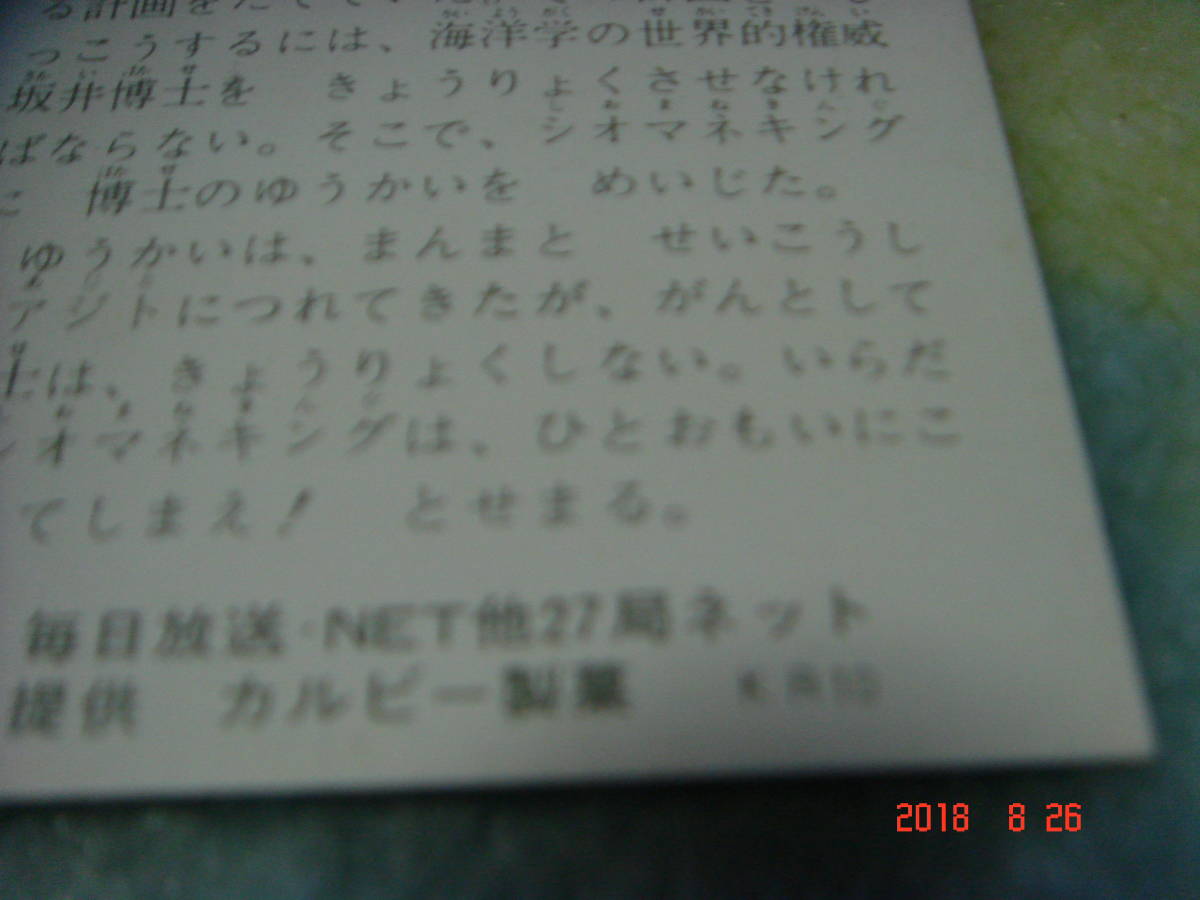 る計画をたてて
っこうするには、海洋学の世界的権威
坂井博士を きょうりょくさせなけれ
ばならない。そこで、シオマネキング
に 博士のゆうかいを めいじた。
ゆうかいは、まんまと せいこうし
アジトにつれてきたが、がんとして
士は、きょうりょくしない。いらだ
シオマネキングは、ひとおもいにこ
てしまえ! とせまる。
毎日放送・NET他27局ネット
提供 カルビー製菓 KR10
2018 8 26